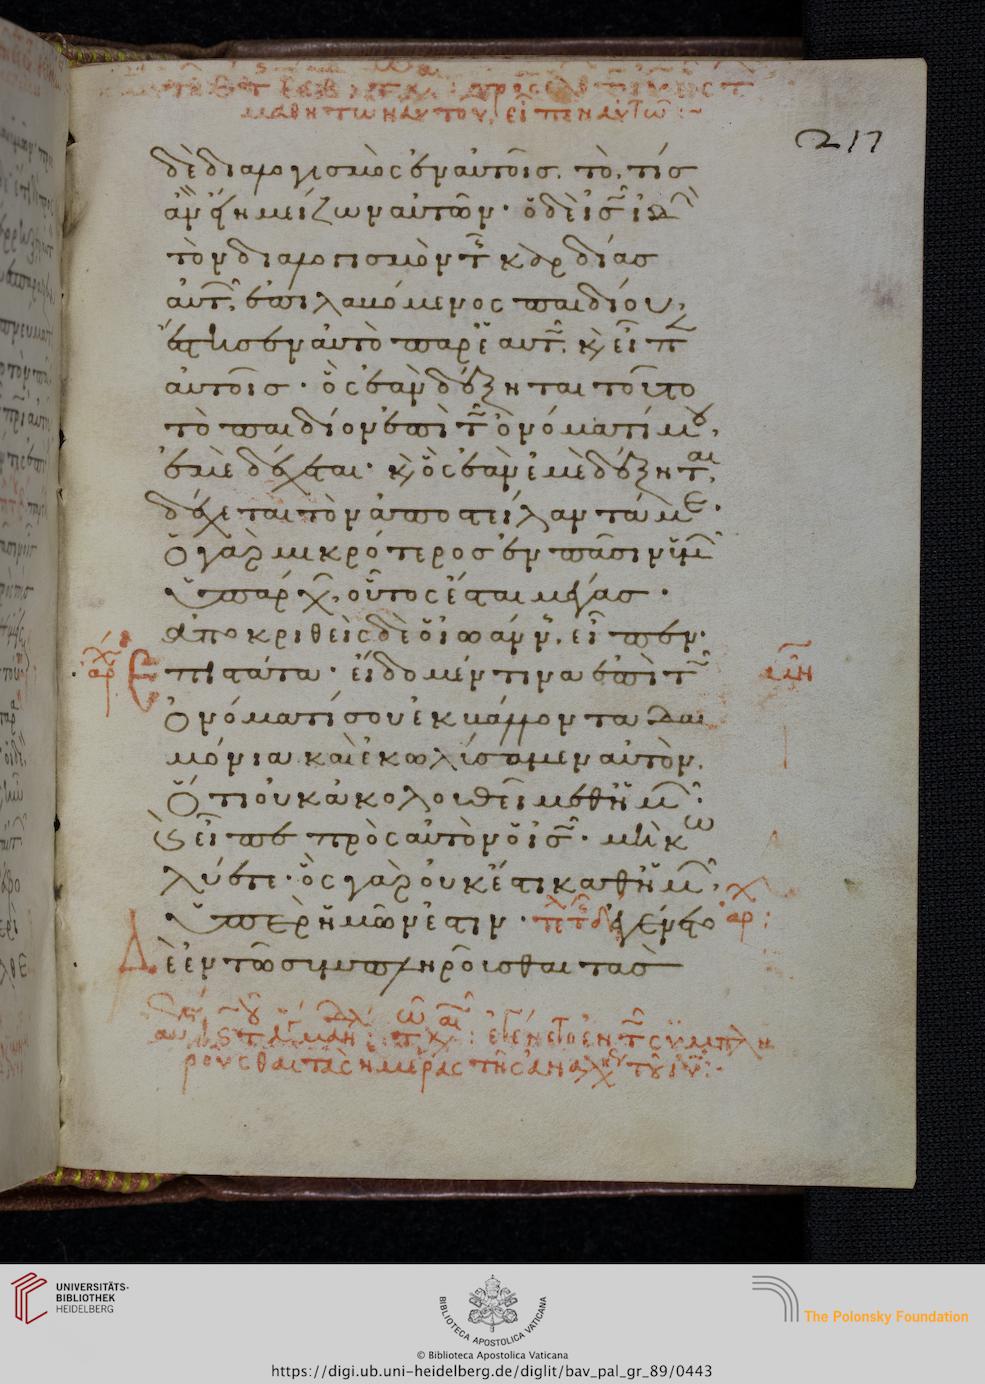 μαθητων αυτου, ειπεν αυτω :~
217
δὲ διαλογισμὸς ἐν αὐτοῖς. τὸ, τίς
ἂν εἴη μείζων αὐτῶν· ὁ δὲ ἰς̅ ἰδὼ
τὸν διαλογισμὸν τῆ καρδίας
αὐτ, ἐπιλαβόμενος παιδίου,
ἔστησεν αὐτὸ παρ' ἑαυτ. κ̀ εἶπ
αὐτοῖς· ὃς ἐὰν δέξηται τοῦτο
τὸ παιδίον ἐπὶ τ ὀνόματί μου,
ἐμὲ δέχεται· κ̀ ὃς ἐὰν ἐμὲ δέξηται,
δέχεται τὸν ἀποστείλαντά με·
ὁ γὰρ μικρότερος ἐν πᾶσιν ὑμ
ὑπάρχ, οὗτος ἔσται μέγας·
ἀποκριθεὶς δὲ ὁ ἰωάνν, εἶπεν·
ἐπιστάτα· εἴδομέν τινα ἐπὶ τ
ὀνόματί σου ἐκβάλλοντα δαι
μόνια καὶ ἐκωλύσαμεν αὐτὸν,
ὅτι οὐκ ἀκολουθεῖ μεθ' ἡμ·
κ̀ εἶπε πρὸς αὐτὸν ὁ ἰς̅· μὴ κω
λύετε· ὃς γὰρ οὐκ ἔστι καθ' ἡμ,
ὑπὲρ ἡμῶν ἐστιν· ἐγένετο
ἀρ:
δὲ ἐν τῶ συμπληροῦσθαι τὰς
ροῦσθαι τὰς ἡμέρας τῆς ἀναλήψ τοῦ ἰυ̅:-
UNIVERSITÄTS-
BIBLIOTHEK
HEIDELBERG
BIBLIOTECA APOSTOLICA VATICANA
The Polonsky Foundation
© Biblioteca Apostolica Vaticana
https://digi.ub.uni-heidelberg.de/diglit/bav_pal_gr_89/0443